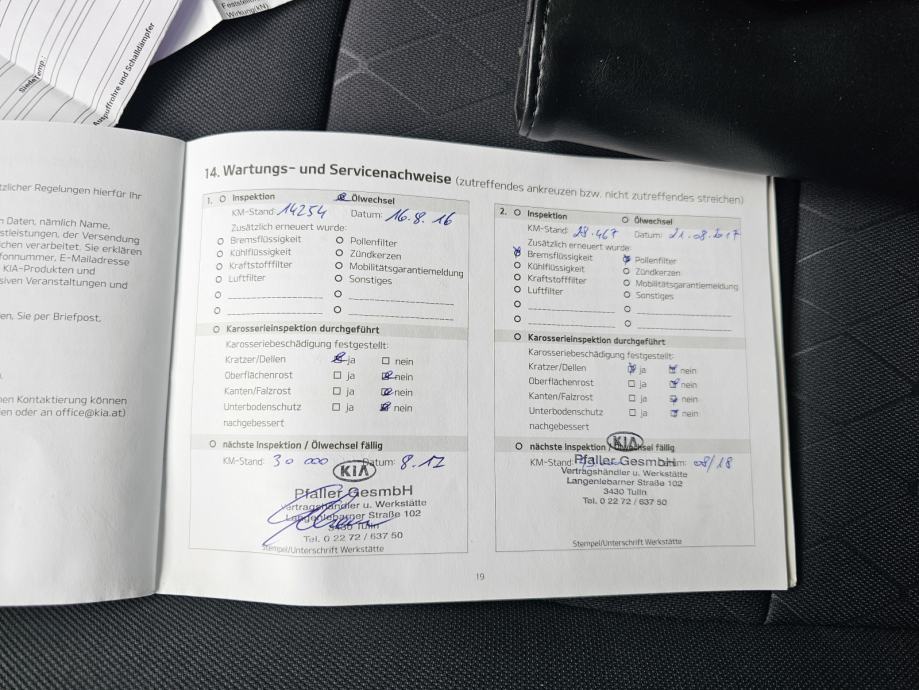 Feststell
Wirkung(kN)
SiedeTemp.
Auspuffrohre und Schalldämpfer
tzlicher Regelungen hierfür Ihr
n Daten, nämlich Name,
stleistungen, der Versendung
ichen verarbeitet. Sie erklären
fonnummer, E-Mailadresse
KIA-Produkten und
siven Veranstaltungen und
en, Sie per Briefpost,
nen Kontaktierung können
en oder an office@kia.at)
14. Wartungs- und Servicenachweise (zutreffendes ankreuzen bzw. nicht zutreffendes streichen)
1. Inspektion Ölwechsel
KM-Stand: 14254 Datum: 16.8.16
Zusätzlich erneuert wurde:
Bremsflüssigkeit Pollenfilter
Kühlflüssigkeit Zündkerzen
Kraftstofffilter Mobilitätsgarantiemeldung
Luftfilter Sonstiges
Karosserieinspektion durchgeführt
Karosseriebeschädigung festgestellt:
Kratzer/Dellen ja nein
Oberflächenrost ja nein
Kanten/Falzrost ja nein
Unterbodenschutz ja nein
nachgebessert
nächste Inspektion / Ölwechsel fällig
KM-Stand: 30 000 Datum: 8.17
KIA
Pfaller GesmbH
Vertragshändler u. Werkstätte
Langenlebarner Straße 102
3430 Tulln
Tel. 0 22 72 / 637 50
Stempel/Unterschrift Werkstätte
2. Inspektion Ölwechsel
KM-Stand: 28.467 Datum: 21.08.2017
Zusätzlich erneuert wurde:
Bremsflüssigkeit Pollenfilter
Kühlflüssigkeit Zündkerzen
Kraftstofffilter Mobilitätsgarantiemeldung
Luftfilter Sonstiges
Karosserieinspektion durchgeführt
Karosseriebeschädigung festgestellt:
Kratzer/Dellen ja nein
Oberflächenrost ja nein
Kanten/Falzrost ja nein
Unterbodenschutz ja nein
nachgebessert
nächste Inspektion / Ölwechsel fällig
KIA
KM-Stand: Datum: 08/18
Pfaller GesmbH
Vertragshändler u. Werkstätte
Langenlebarner Straße 102
3430 Tulln
Tel. 0 22 72 / 637 50
Stempel/Unterschrift Werkstätte
19